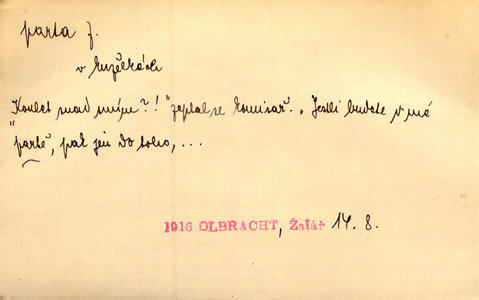 parta f.
v kuželkách
Koulet snad umím?!" zeptal se komisař. „Jestli budete v mé
"partě, pak jen do toho, ...
1916 OLBRACHT, Žalář 14. 8.